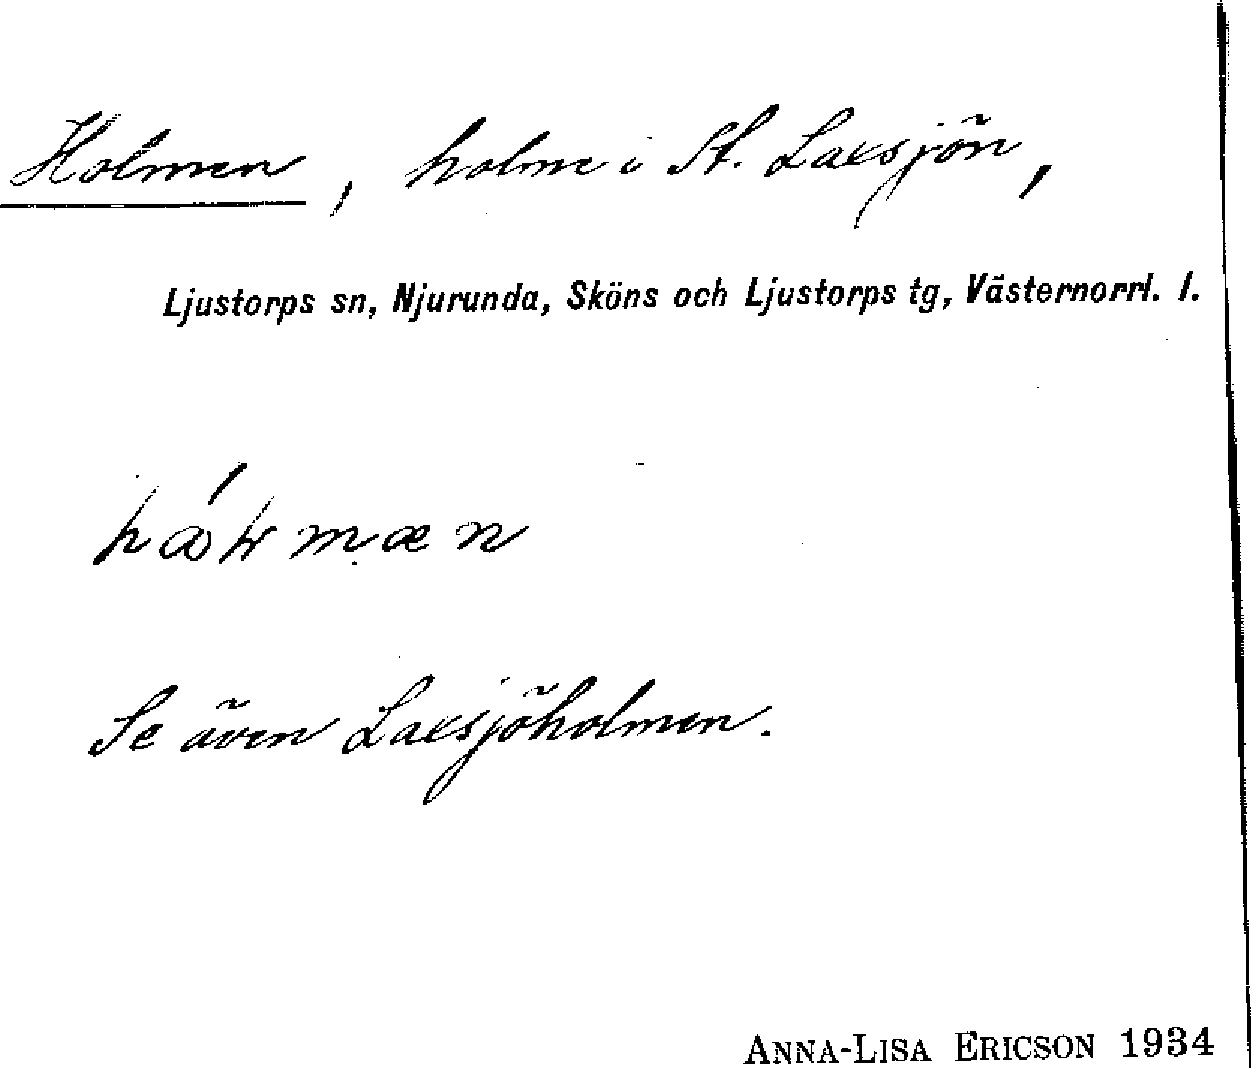 Holmen, holme i St. Laxsjön,
Ljustorps sn, Njurunda, Sköns och Ljustorps tg, Västernorrl. l.
Se även Laxsjöholmen.
ANNA-LISA ERICSON 1934